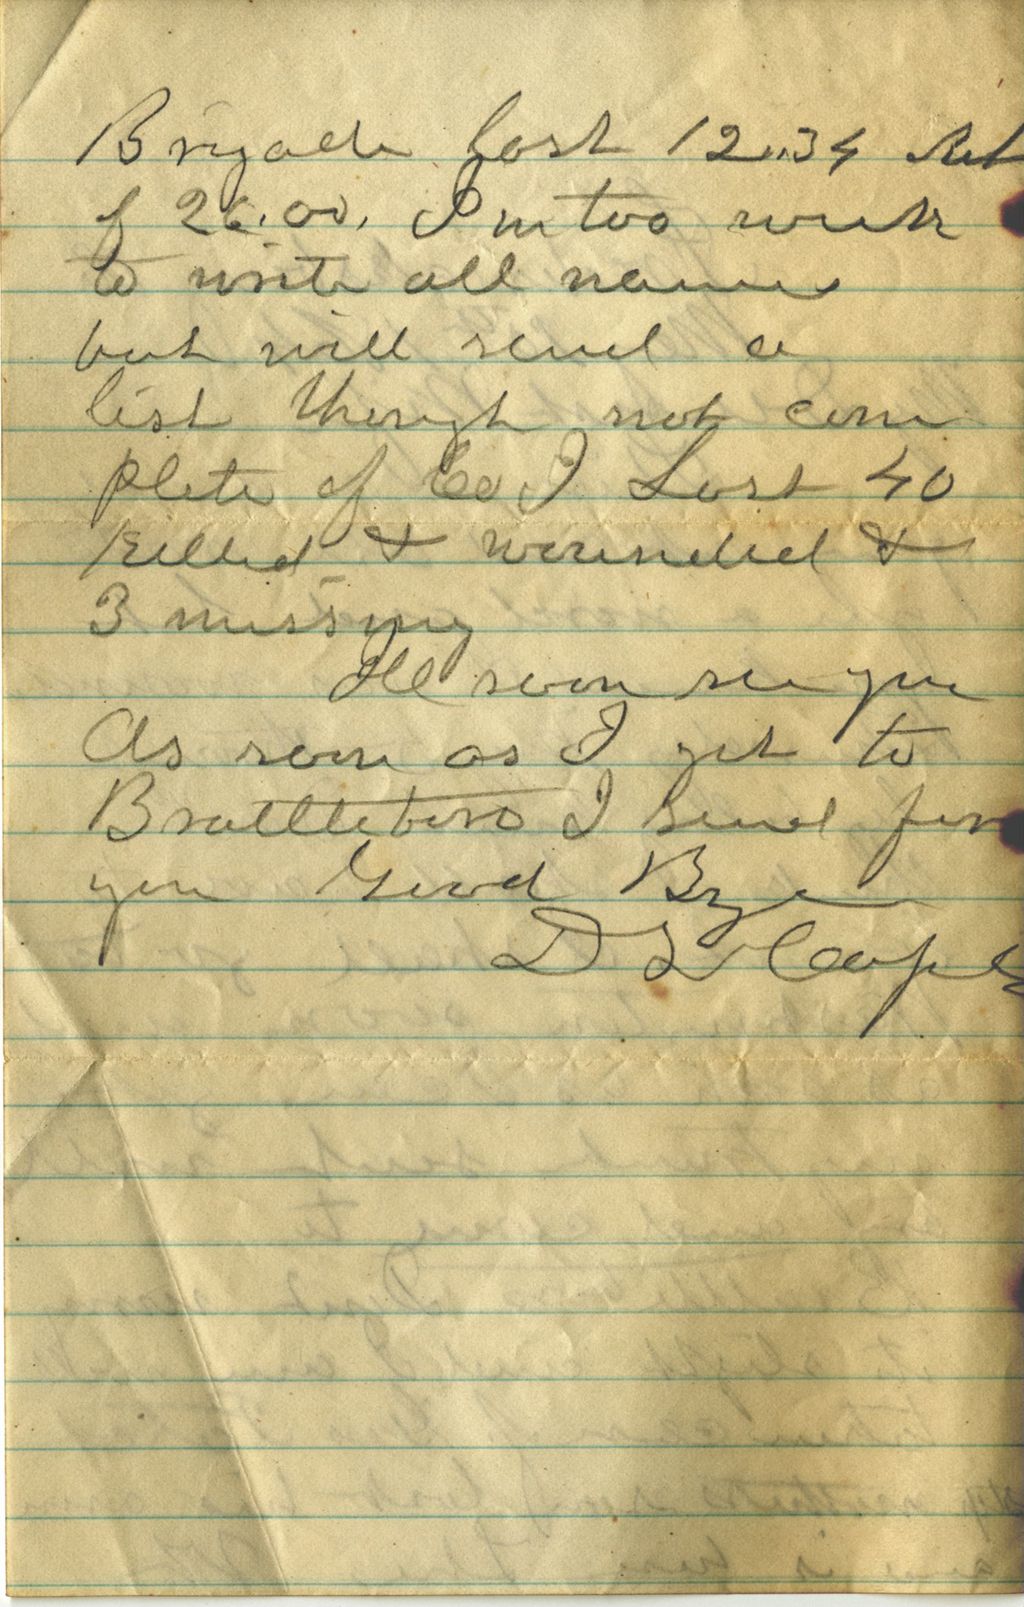 Brigade Lost 1234 out
of 2600. I'm too weak
to write all names
but will send a
list though not com
plete of Co I Lost 40
killed & wounded &
3 missing
Ill soon see you
As soon as I get to
Brattleboro I send for
you Good Bye
D L